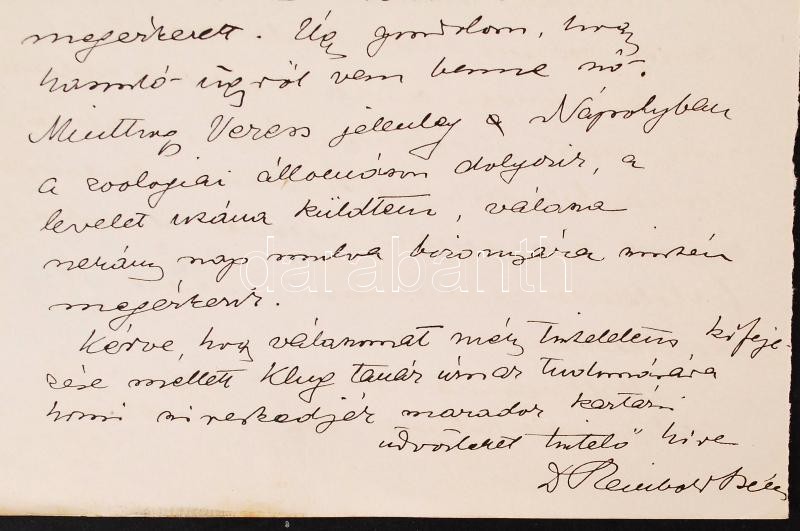 megérkezett. Úgy gondolom, hogy
hasonló ügyről van benne szó.
Veress jelenleg a Nápolyban
a zoologiai állomáson dolgozik, a
levelet utána küldtem, válasza
néhány nap mulva bizonyára
megérkezik.
Kérve, hogy válaszomat mély tiszteletem kifeje-
zése mellett Klug tanár úrnak tudomására
hozni sziveskedjék maradok kartársi
üdvözlettel tisztelő hive
Dr Reinbold Béla
darabanth